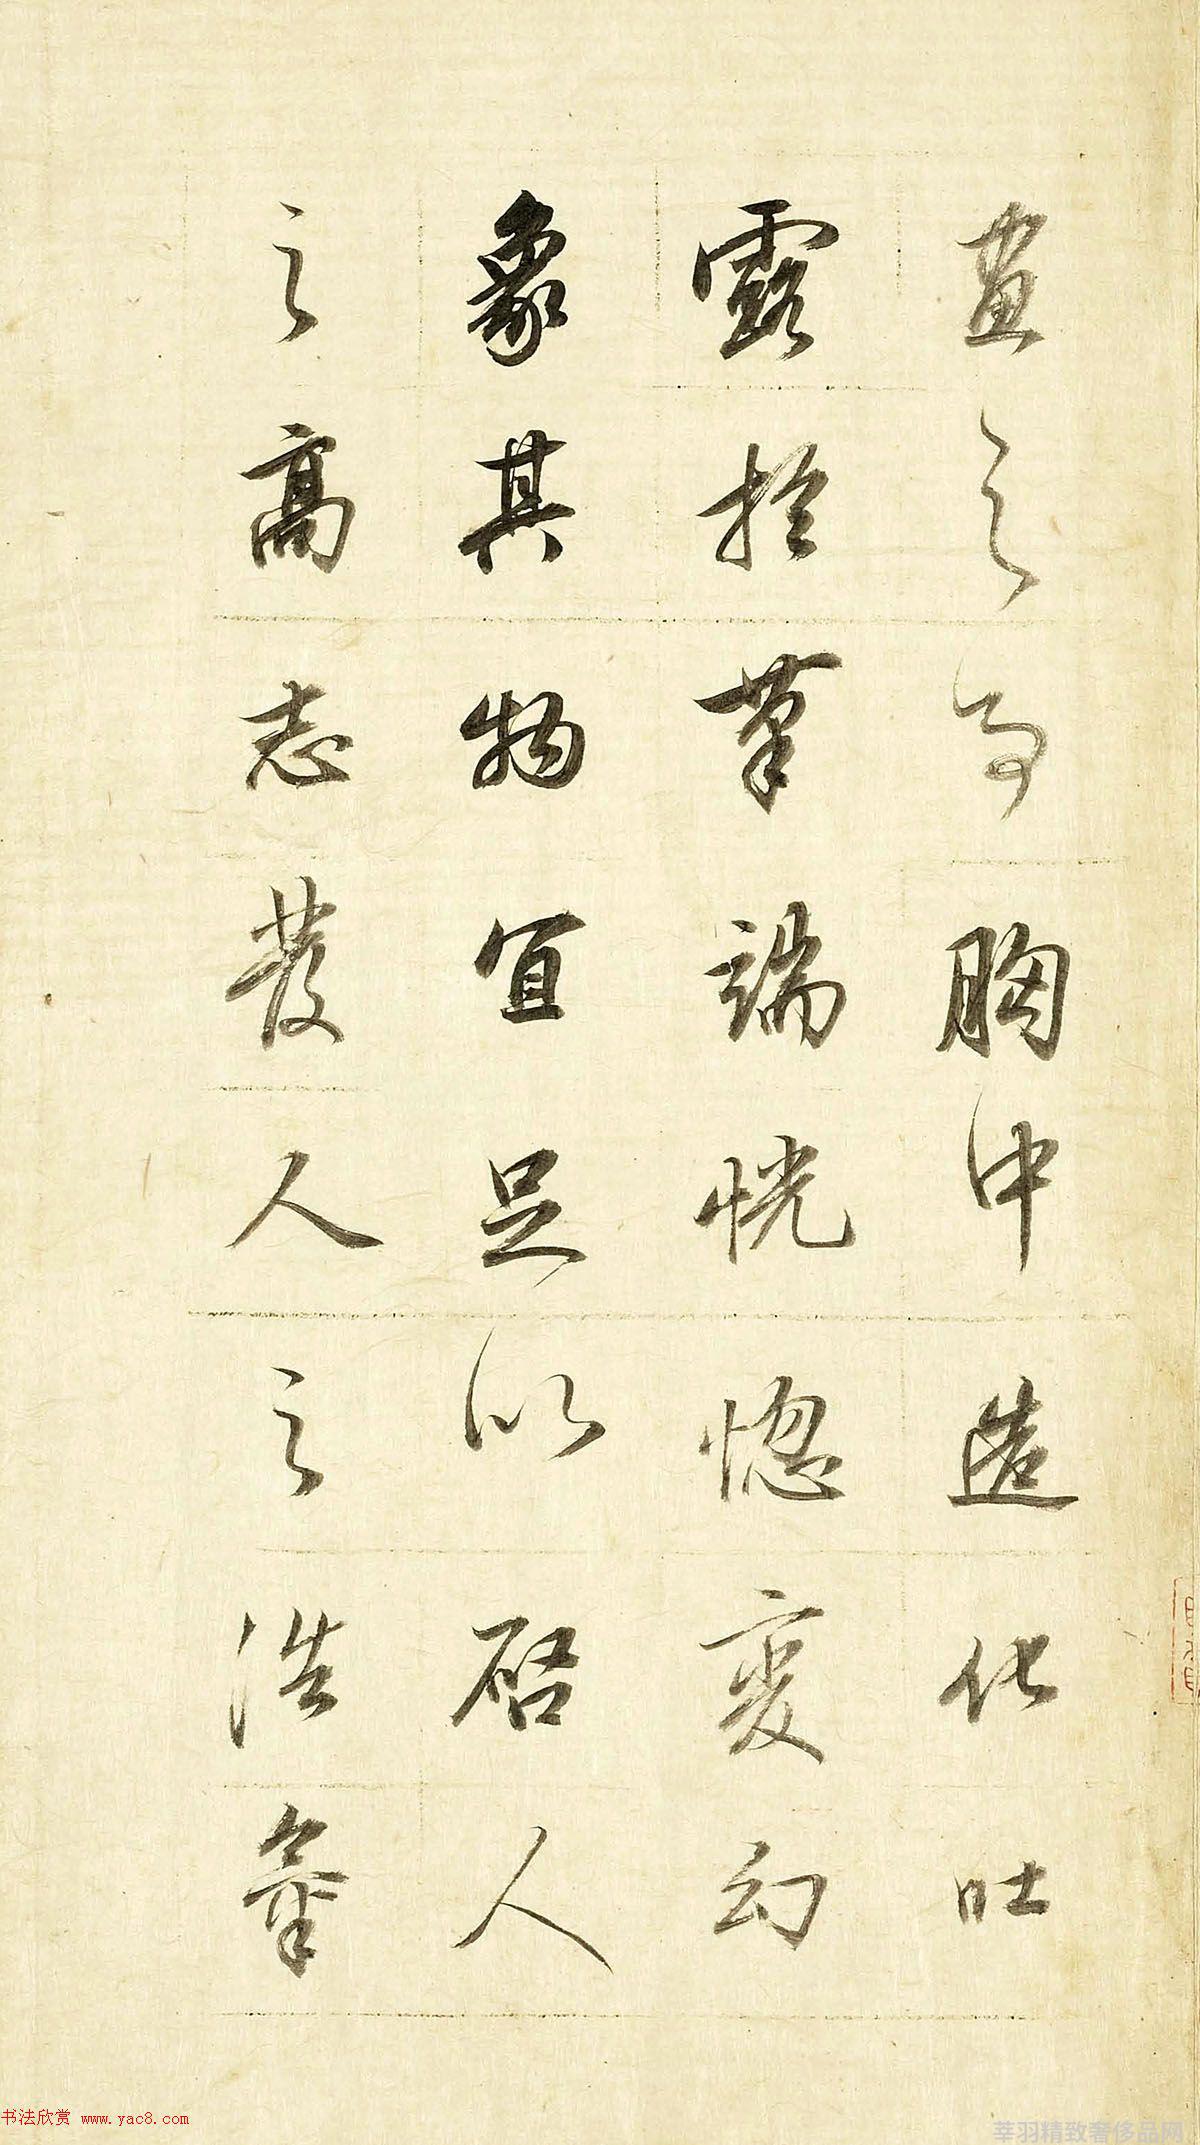 畫之為胸中造化吐
露於筆端恍惚變幻
象其物宜足以啓人
之高志發人之浩氣
书法欣赏 www.yac8.com
莘羽精致奢侈品网